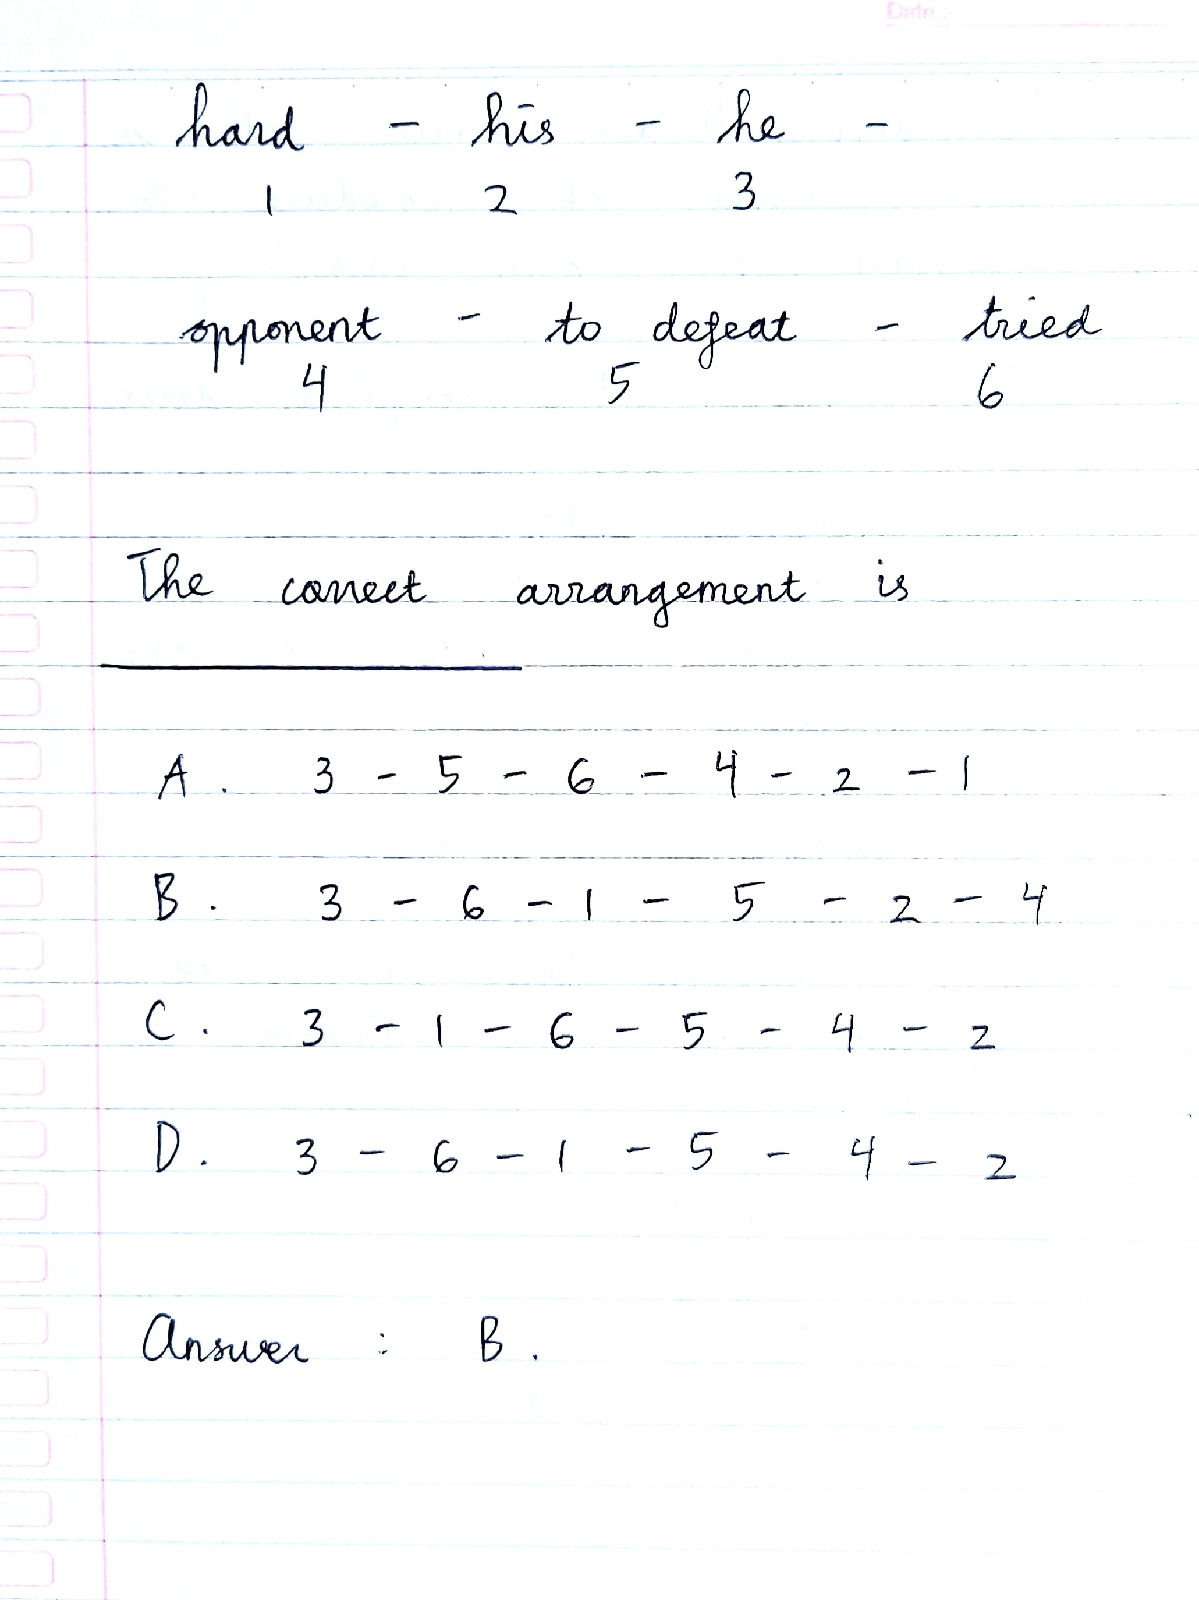 Date :
hard - his - he -
1 2 3
opponent - to defeat - tried
4 5 6
The correct arrangement is
A. 3 - 5 - 6 - 4 - 2 - 1
B. 3 - 6 - 1 - 5 - 2 - 4
C. 3 - 1 - 6 - 5 - 4 - 2
D. 3 - 6 - 1 - 5 - 4 - 2
Answer : B.